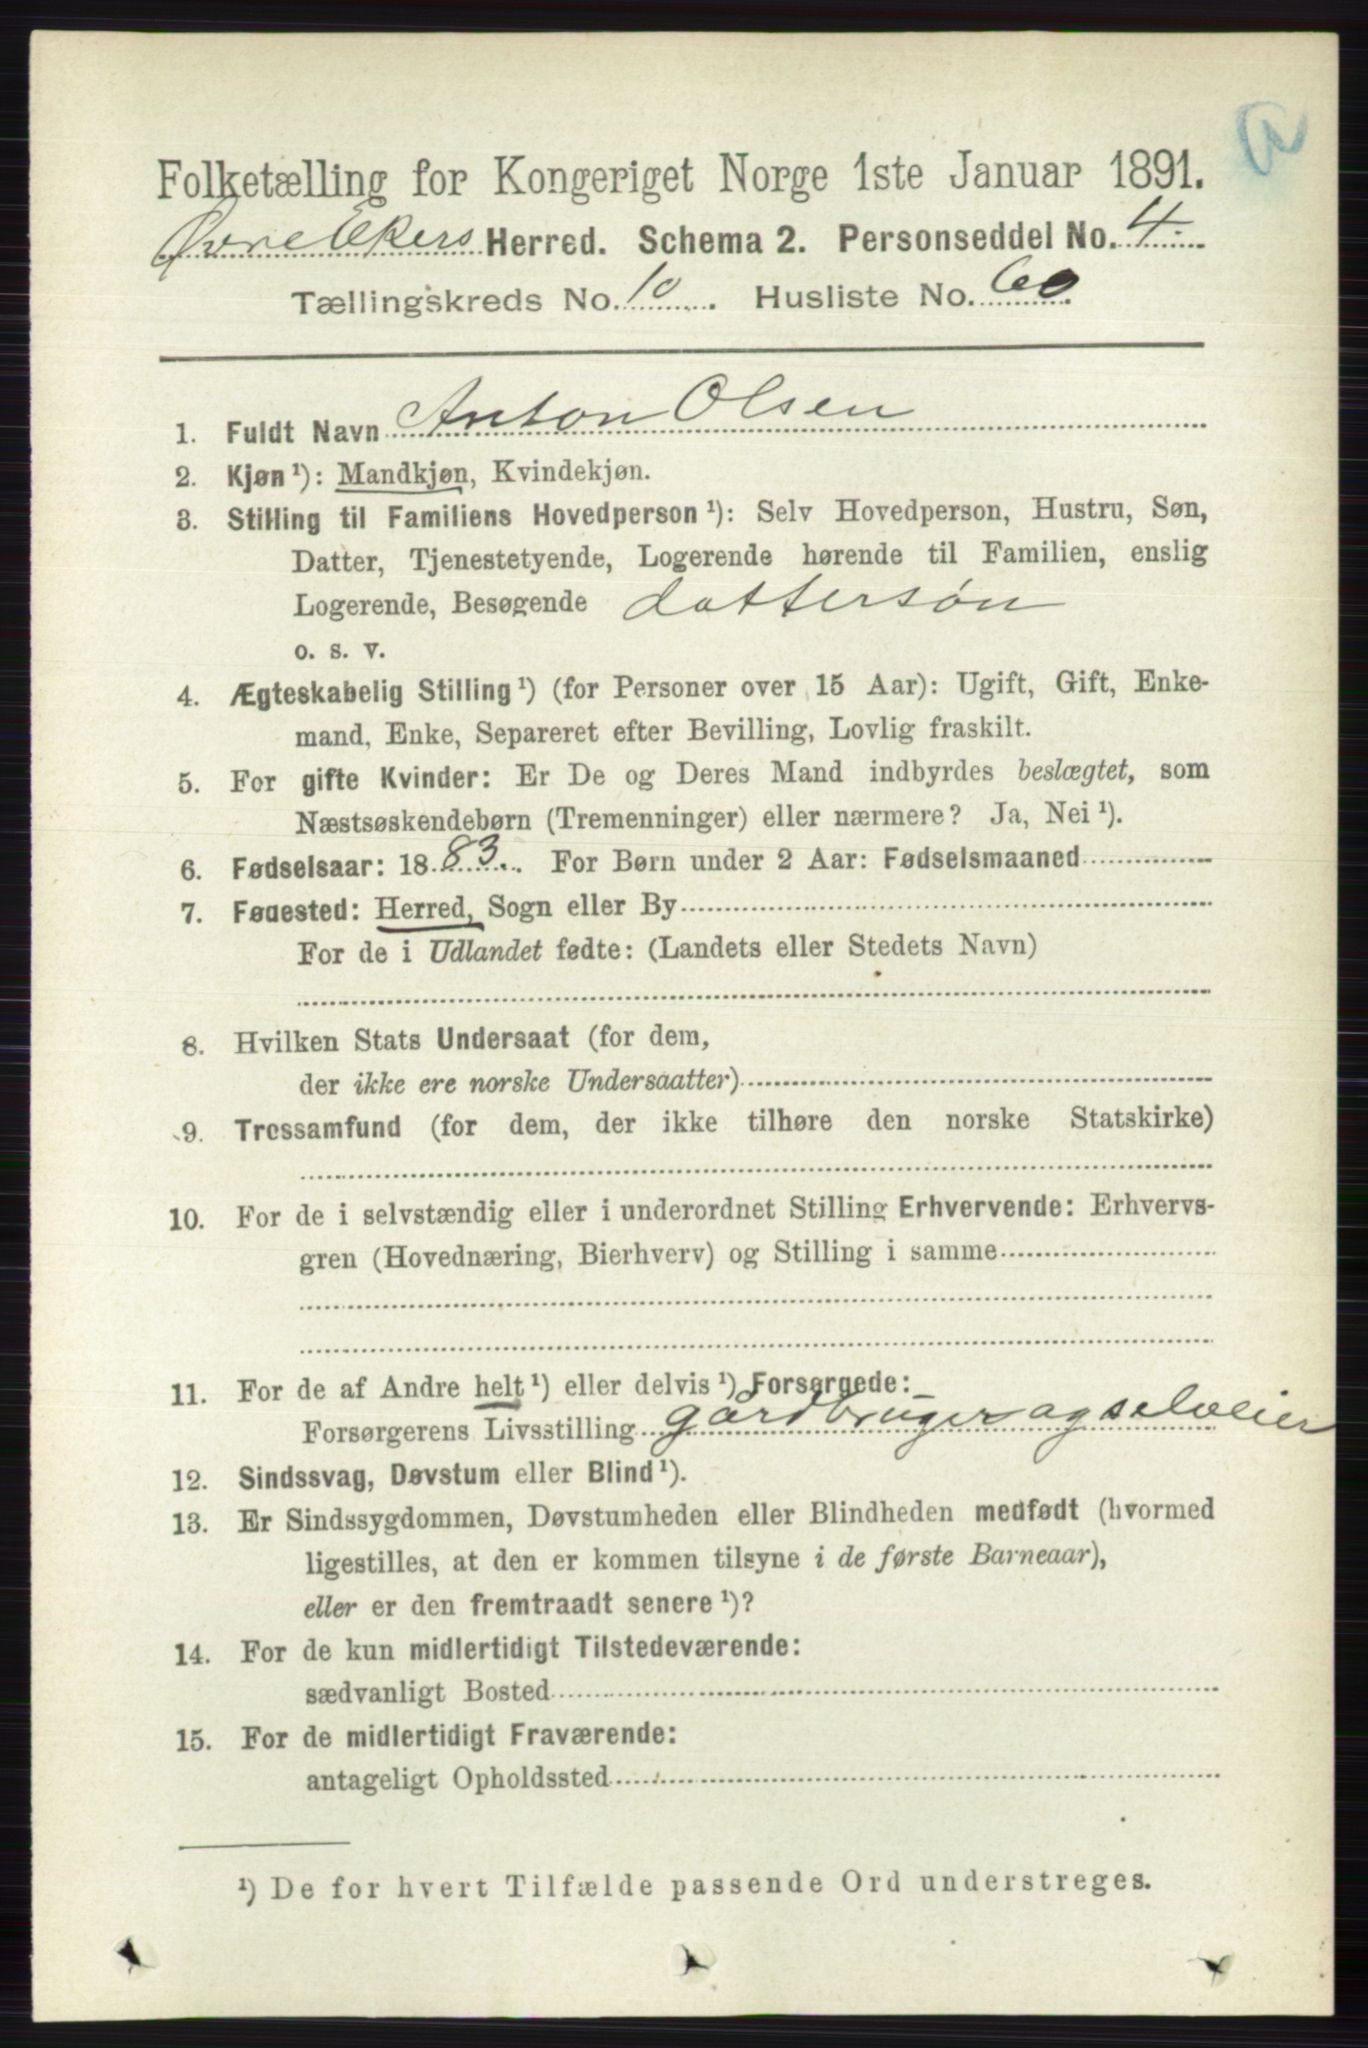 Folketælling for Kongeriget Norge 1ste Januar 1891.
Øvre Ekers Herred. Schema 2. Personseddel No. 4.
Tællingskreds No. 10. Husliste No. 60.
1. Fuldt Navn Anton Olsen
2. Kjøn ¹): Mandkjøn, Kvindekjøn.
3. Stilling til Familiens Hovedperson ¹): Selv Hovedperson, Hustru, Søn,
Datter, Tjenestetyende, Logerende hørende til Familien, enslig
Logerende, Besøgende dattersøn
o. s. v.
4. Ægteskabelig Stilling ¹) (for Personer over 15 Aar): Ugift, Gift, Enke-
mand, Enke, Separeret efter Bevilling, Lovlig fraskilt.
5. For gifte Kvinder: Er De og Deres Mand indbyrdes beslægtet, som
Næstsøskendebørn (Tremenninger) eller nærmere? Ja, Nei ¹).
6. Fødselsaar: 1883. For Børn under 2 Aar: Fødselsmaaned
7. Fødested: Herred, Sogn eller By
For de i Udlandet fødte: (Landets eller Stedets Navn)
8. Hvilken Stats Undersaat (for dem,
der ikke ere norske Undersaatter)
9. Trossamfund (for dem, der ikke tilhøre den norske Statskirke)
10. For de i selvstændig eller i underordnet Stilling Erhvervende: Erhvervs-
gren (Hovednæring, Bierhverv) og Stilling i samme
11. For de af Andre helt ¹) eller delvis ¹) Forsørgede:
Forsørgerens Livsstilling gårdbruger og selveier
12. Sindssvag, Døvstum eller Blind ¹).
13. Er Sindssygdommen, Døvstumheden eller Blindheden medfødt (hvormed
ligestilles, at den er kommen tilsyne i de første Barneaar),
eller er den fremtraadt senere ¹)?
14. For de kun midlertidigt Tilstedeværende:
sædvanligt Bosted
15. For de midlertidigt Fraværende:
antageligt Opholdssted
¹) De for hvert Tilfælde passende Ord understreges.